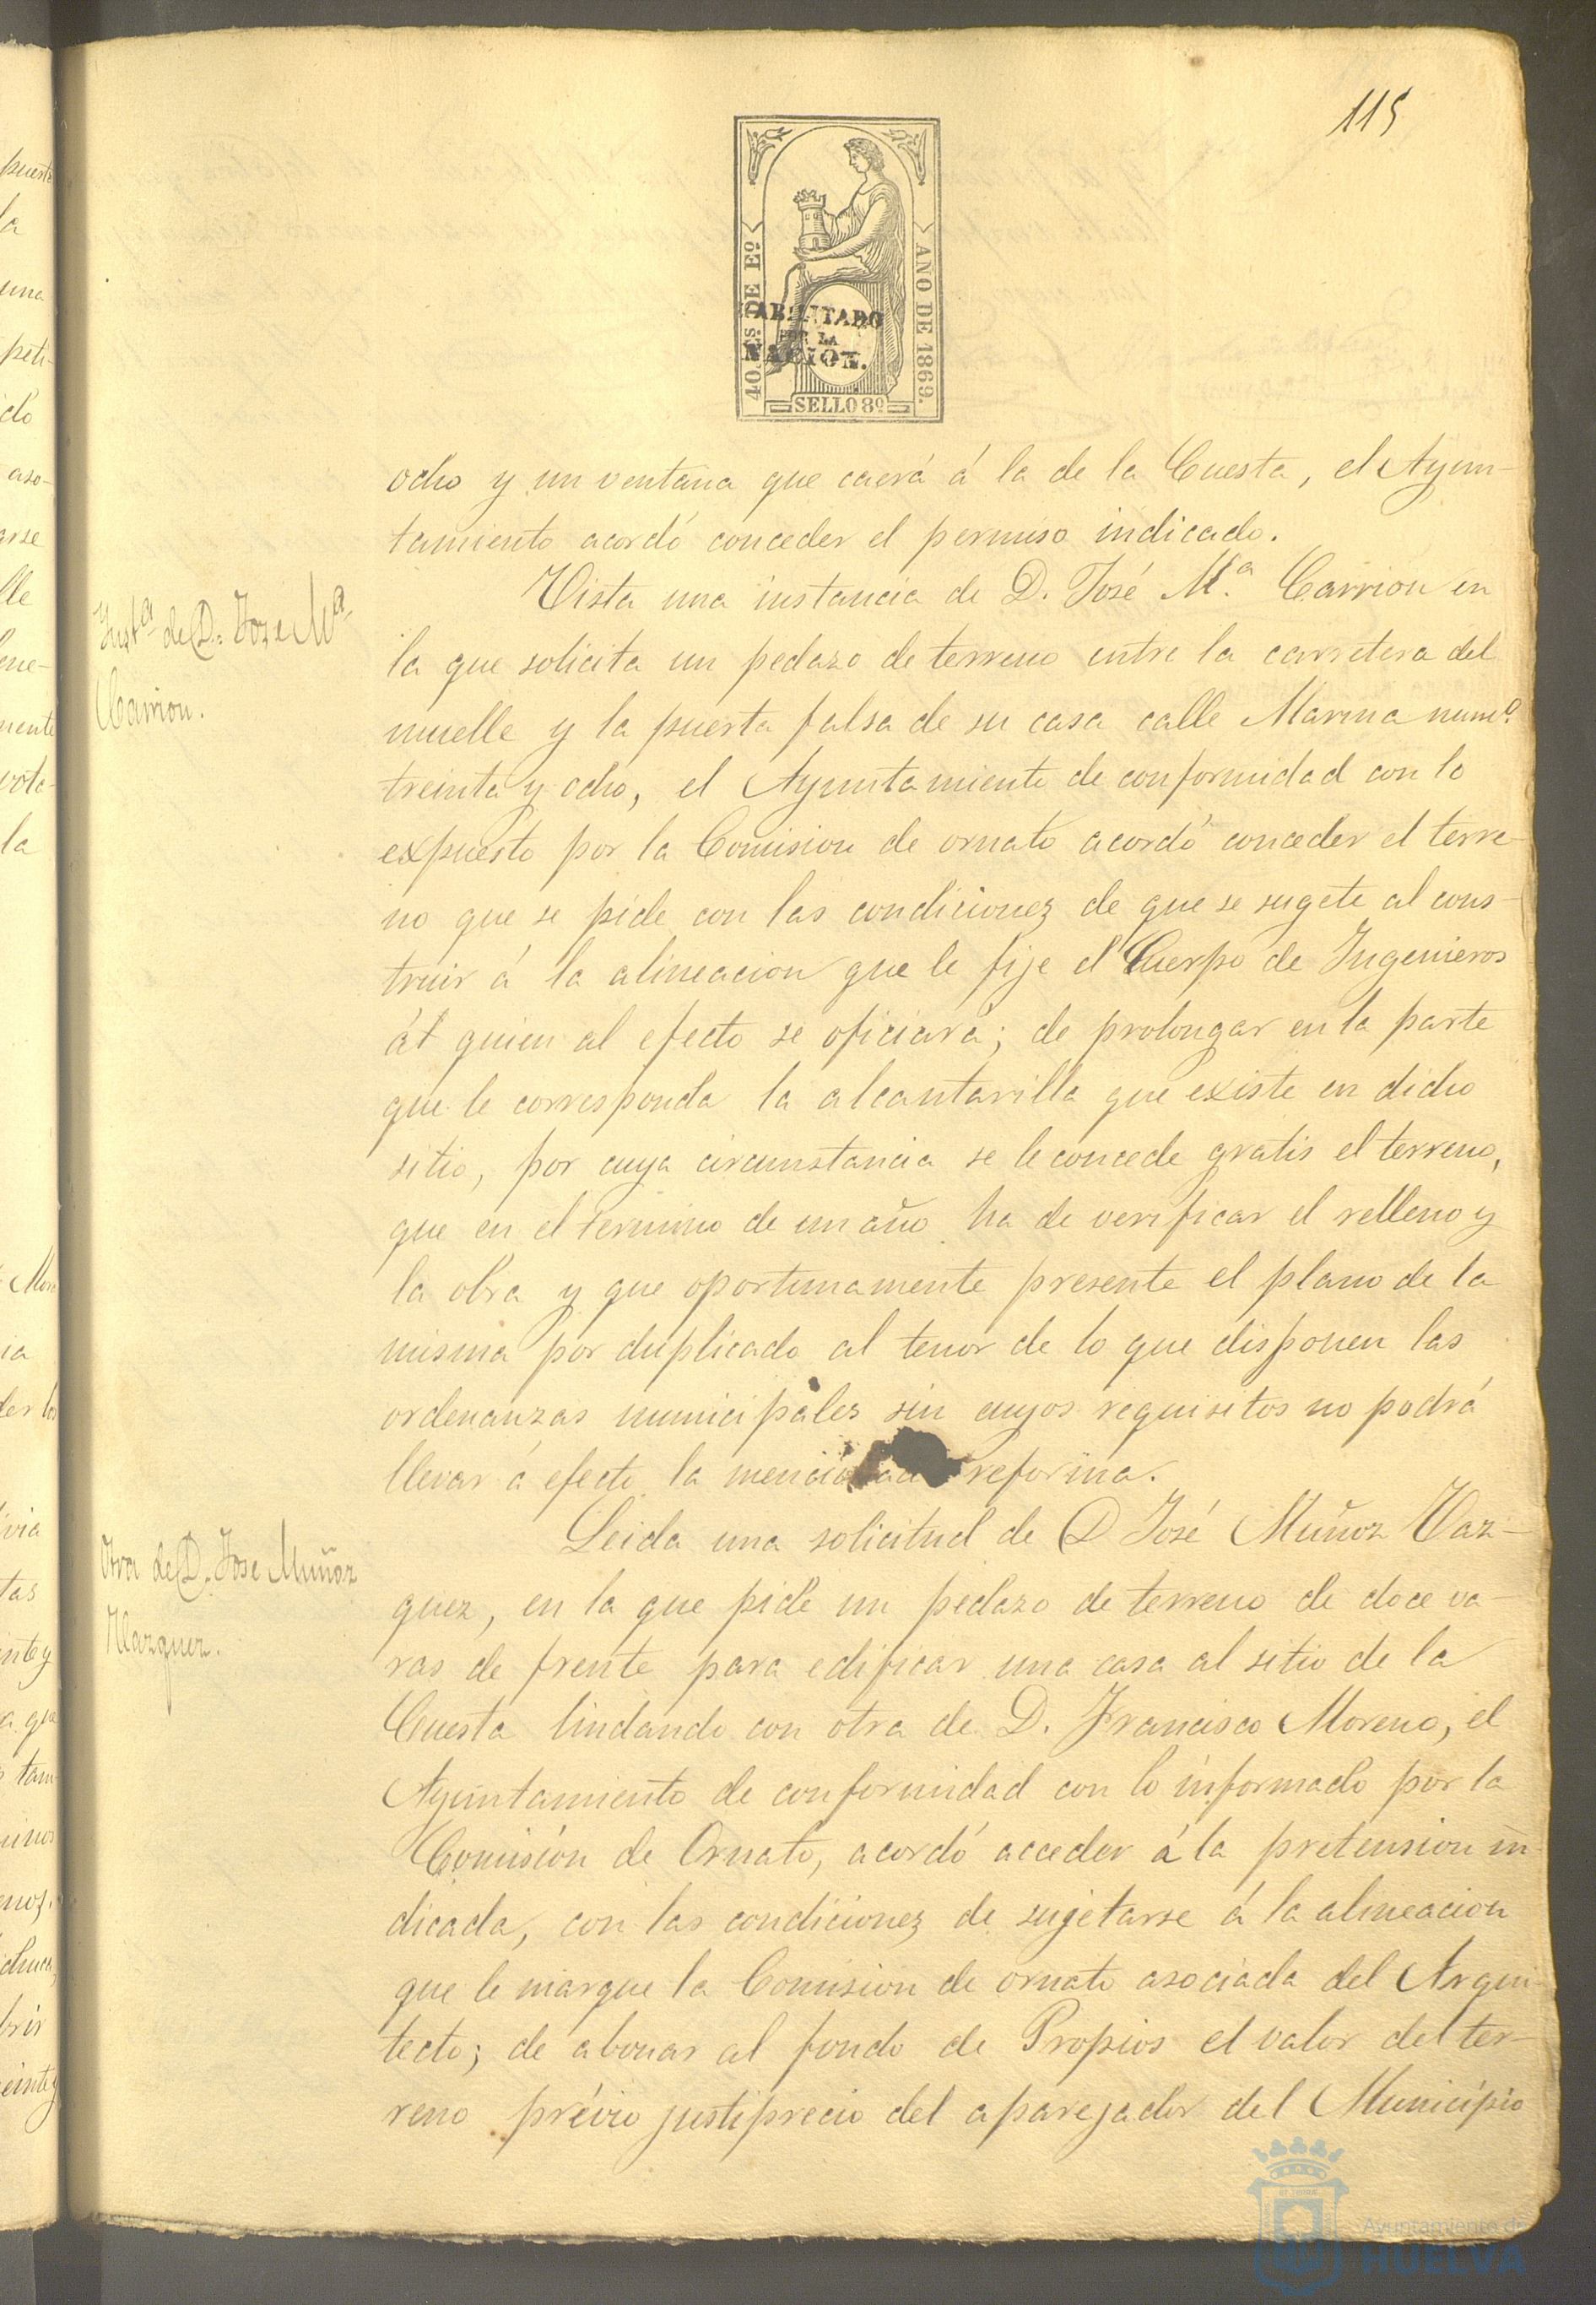 115
40 Cs. DE Eº
AÑO DE 1869.
HABILITADO
POR LA
NACION.
SELLO 8º
ocho y un ventana que caerá á la de la Cuesta, el Ayun-
tamiento acordó conceder el permiso indicado.
Ynstª de D. Jose Mª
Carrion.
Vista una instancia de D. José M.ª Carrion en
la que solicita un pedazo de terreno entre la carretera del
muelle y la puerta falsa de su casa calle Marina numº
treinta y ocho, el Ayuntamiento de conformidad con lo
expuesto por la Comision de ornato acordó conceder el terre-
no que se pide con las condicionez de que se sugete al cons-
truir á la alineacion que le fije el Cuerpo de Ingenieros
á quien al efecto se oficiará; de prolongar en la parte
que le corresponda la alcantarilla que existe en dicho
sitio, por cuya circunstancia se le concede gratis el terreno,
que en el termino de un año ha de verificar el relleno y
la obra y que oportunamente presente el plano de la
misma por duplicado al tenor de lo que disponen las
ordenanzas municipales sin cuyos requisitos no podrá
llevar á efecto la mencionada reforma.
Otra de D. Jose Muñoz
Vazquez.
Leida una solicitud de D José Muñoz Vaz-
quez, en la que pide un pedazo de terreno de doce va-
ras de frente para edificar una casa al sitio de la
Cuesta lindando con otra de D. Francisco Moreno, el
Ayuntamiento de conformidad con lo informado por la
Comisión de Ornato, acordó acceder á la pretension in-
dicada, con las condicionez de sugetarse á la alineacion
que le marque la Comision de ornato asociada del Arqui-
tecto; de abonar al fondo de Propios el valor del ter-
reno prévio justiprecio del aparejador del Municipio
Ayuntamiento de
HUELVA